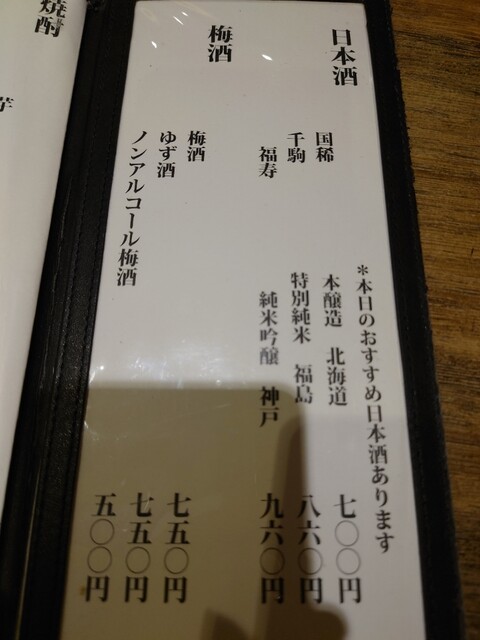 日本酒
＊本日のおすすめ日本酒あります
国稀　本醸造　北海道　七〇〇円
千駒　特別純米　福島　八六〇円
福寿　純米吟醸　神戸　九六〇円
梅酒
梅酒　七五〇円
ゆず酒　七五〇円
ノンアルコール梅酒　五〇〇円
焼酎
芋